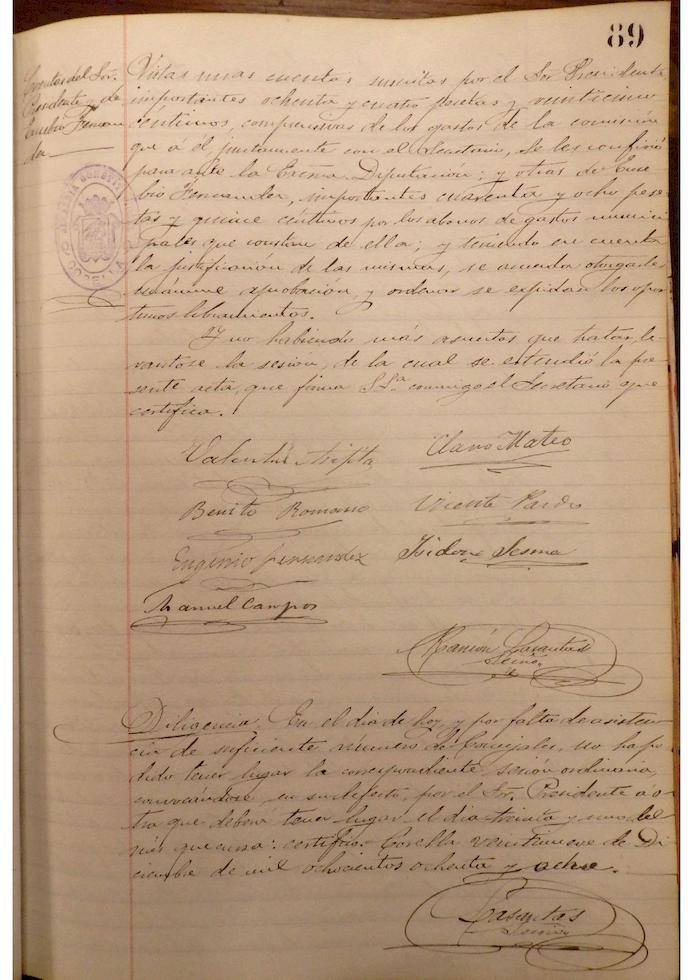 89
Cuentas del Sor.
Presidente y de
Eusebio Fernan
dez
Vistas unas cuentas suscritas por el Sor Presidente
importantes ochenta y cuatro pesetas y veinticinco
centimos, comprensivas de los gastos de la comision
que á él, juntamente con el Secretario, se les confirió
para ante la Excma Diputación; y otras de Euse
bio Fernandez, importantes cuarenta y ocho pese
tas y quince céntimos por los abonos de gastos munici
pales que constan de ella; y teniendo en cuenta
la justificación de las mismas, se acuerda otorgarles
unánime aprobación, y ordenar se expidan los opor
tunos libramientos.
Y no habiendo más asuntos que tratar le
vantose la sesión, de la cual se extendió la pre
sente acta, que firma S.Sa. conmigo el Secretario que
certifica.
Valentin
Clavo Mateo
Benito Romano
Vicente Pardo
Eugenio Fernandez
Isidoro Sesma
Manuel Campos
Ramón
Diligencia. En el dia de hoy, y por falta de asisten
cia de suficiente número de Concejales, no ha po
dido tener lugar la correspondiente sesión ordinaria,
convocándose en su defecto, por el Sor. Presidente á o
tra que deberá tener lugar el dia treinta y uno del
mes que cursa: certifico. Corella veintinueve de Di
ciembre de mil ochocientos ochenta y ocho.